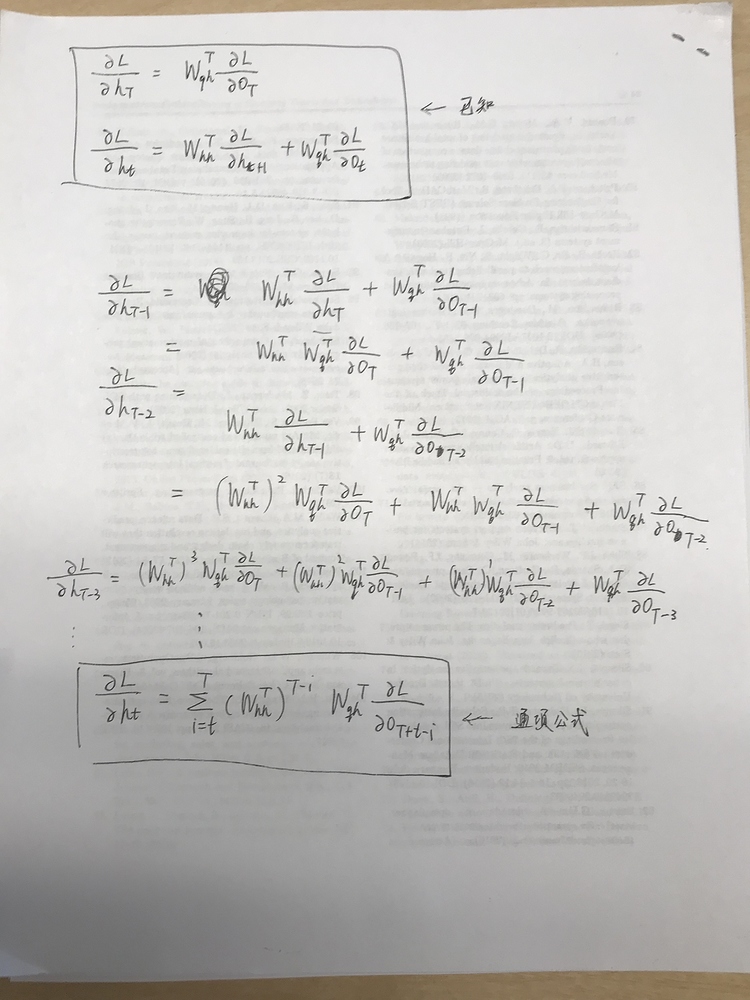 ∂L/∂h_T = W_{qh}^T ∂L/∂O_T
← 已知
∂L/∂h_t = W_{hh}^T ∂L/∂h_{t+1} + W_{qh}^T ∂L/∂O_t
∂L/∂h_{T-1} = W_{hh}^T ∂L/∂h_T + W_{qh}^T ∂L/∂O_{T-1}
= W_{hh}^T W_{qh}^T ∂L/∂O_T + W_{qh}^T ∂L/∂O_{T-1}
∂L/∂h_{T-2} = W_{hh}^T ∂L/∂h_{T-1} + W_{qh}^T ∂L/∂O_{T-2}
= (W_{hh}^T)^2 W_{qh}^T ∂L/∂O_T + W_{hh}^T W_{qh}^T ∂L/∂O_{T-1} + W_{qh}^T ∂L/∂O_{T-2}
∂L/∂h_{T-3} = (W_{hh}^T)^3 W_{qh}^T ∂L/∂O_T + (W_{hh}^T)^2 W_{qh}^T ∂L/∂O_{T-1} + (W_{hh}^T)^1 W_{qh}^T ∂L/∂O_{T-2} + W_{qh}^T ∂L/∂O_{T-3}
⋮ ⋮
∂L/∂h_t = ∑_{i=t}^{T} (W_{hh}^T)^{T-i} W_{qh}^T ∂L/∂O_{T+t-i}
← 通項公式